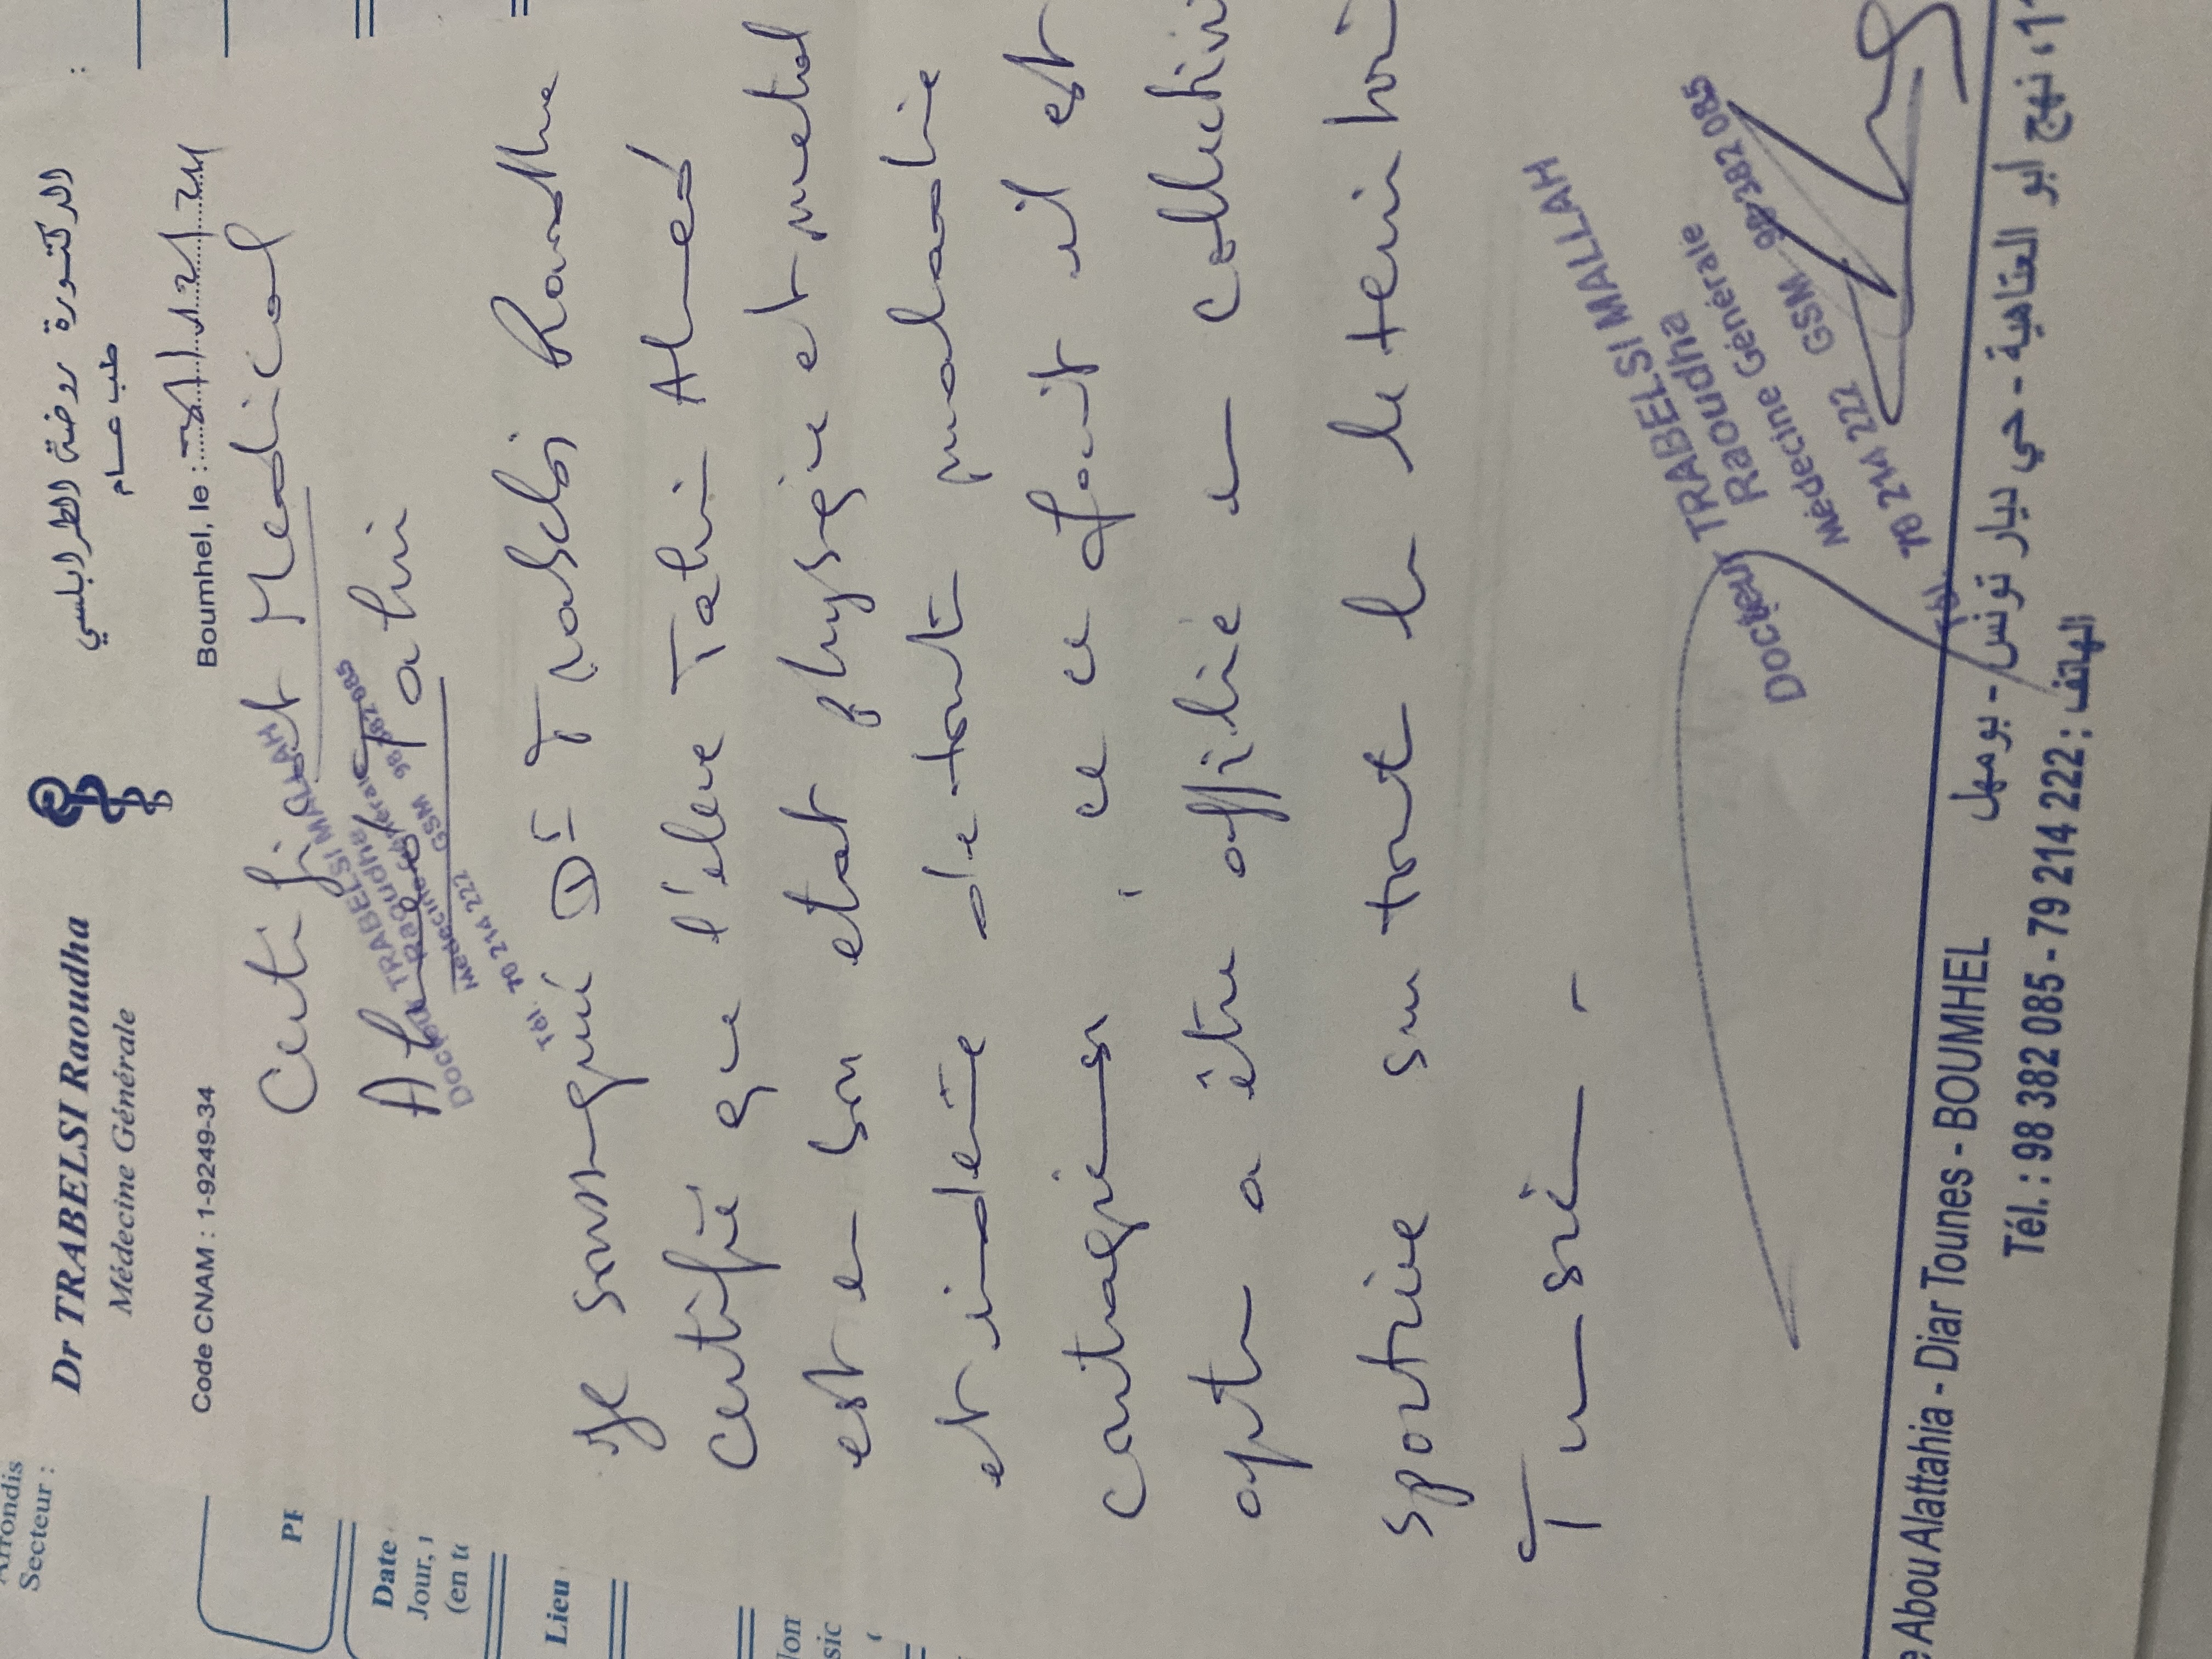 Dr TRABELSI Raoudha
Médecine Générale
Code CNAM : 1-9249-34
الدكتورة روضة الطرابلسي
طب عام
Boumhel, le :
Certificat Medical
Ahmed Tahri
Docteur TRABELSI MALLAH
Raoudha
Médecine Générale
Tél. 70 214 222 GSM 98 382 085
Je soussigné Dr Trabelsi Raoudha
Certifie que l'eleve Tahri Ahmed
est en bon etat physique et mental
et indemne de toute maladie
contagieuse ce fait il est
apte a être affilié en collectivi
sportive sur tout le territoi
Tunisie -
Docteur TRABELSI MALLAH
Raoudha
Médecine Générale
Tél. 70 214 222 GSM 98 382 085
11، نهج أبو العتاهية - حي ديار تونس - بومهل
e Abou Alattahia - Diar Tounes - BOUMHEL
Tél. : 98 382 085 - 79 214 222 : الهاتف
Secteur :
PI
Date
Jour,
(en t
Lieu